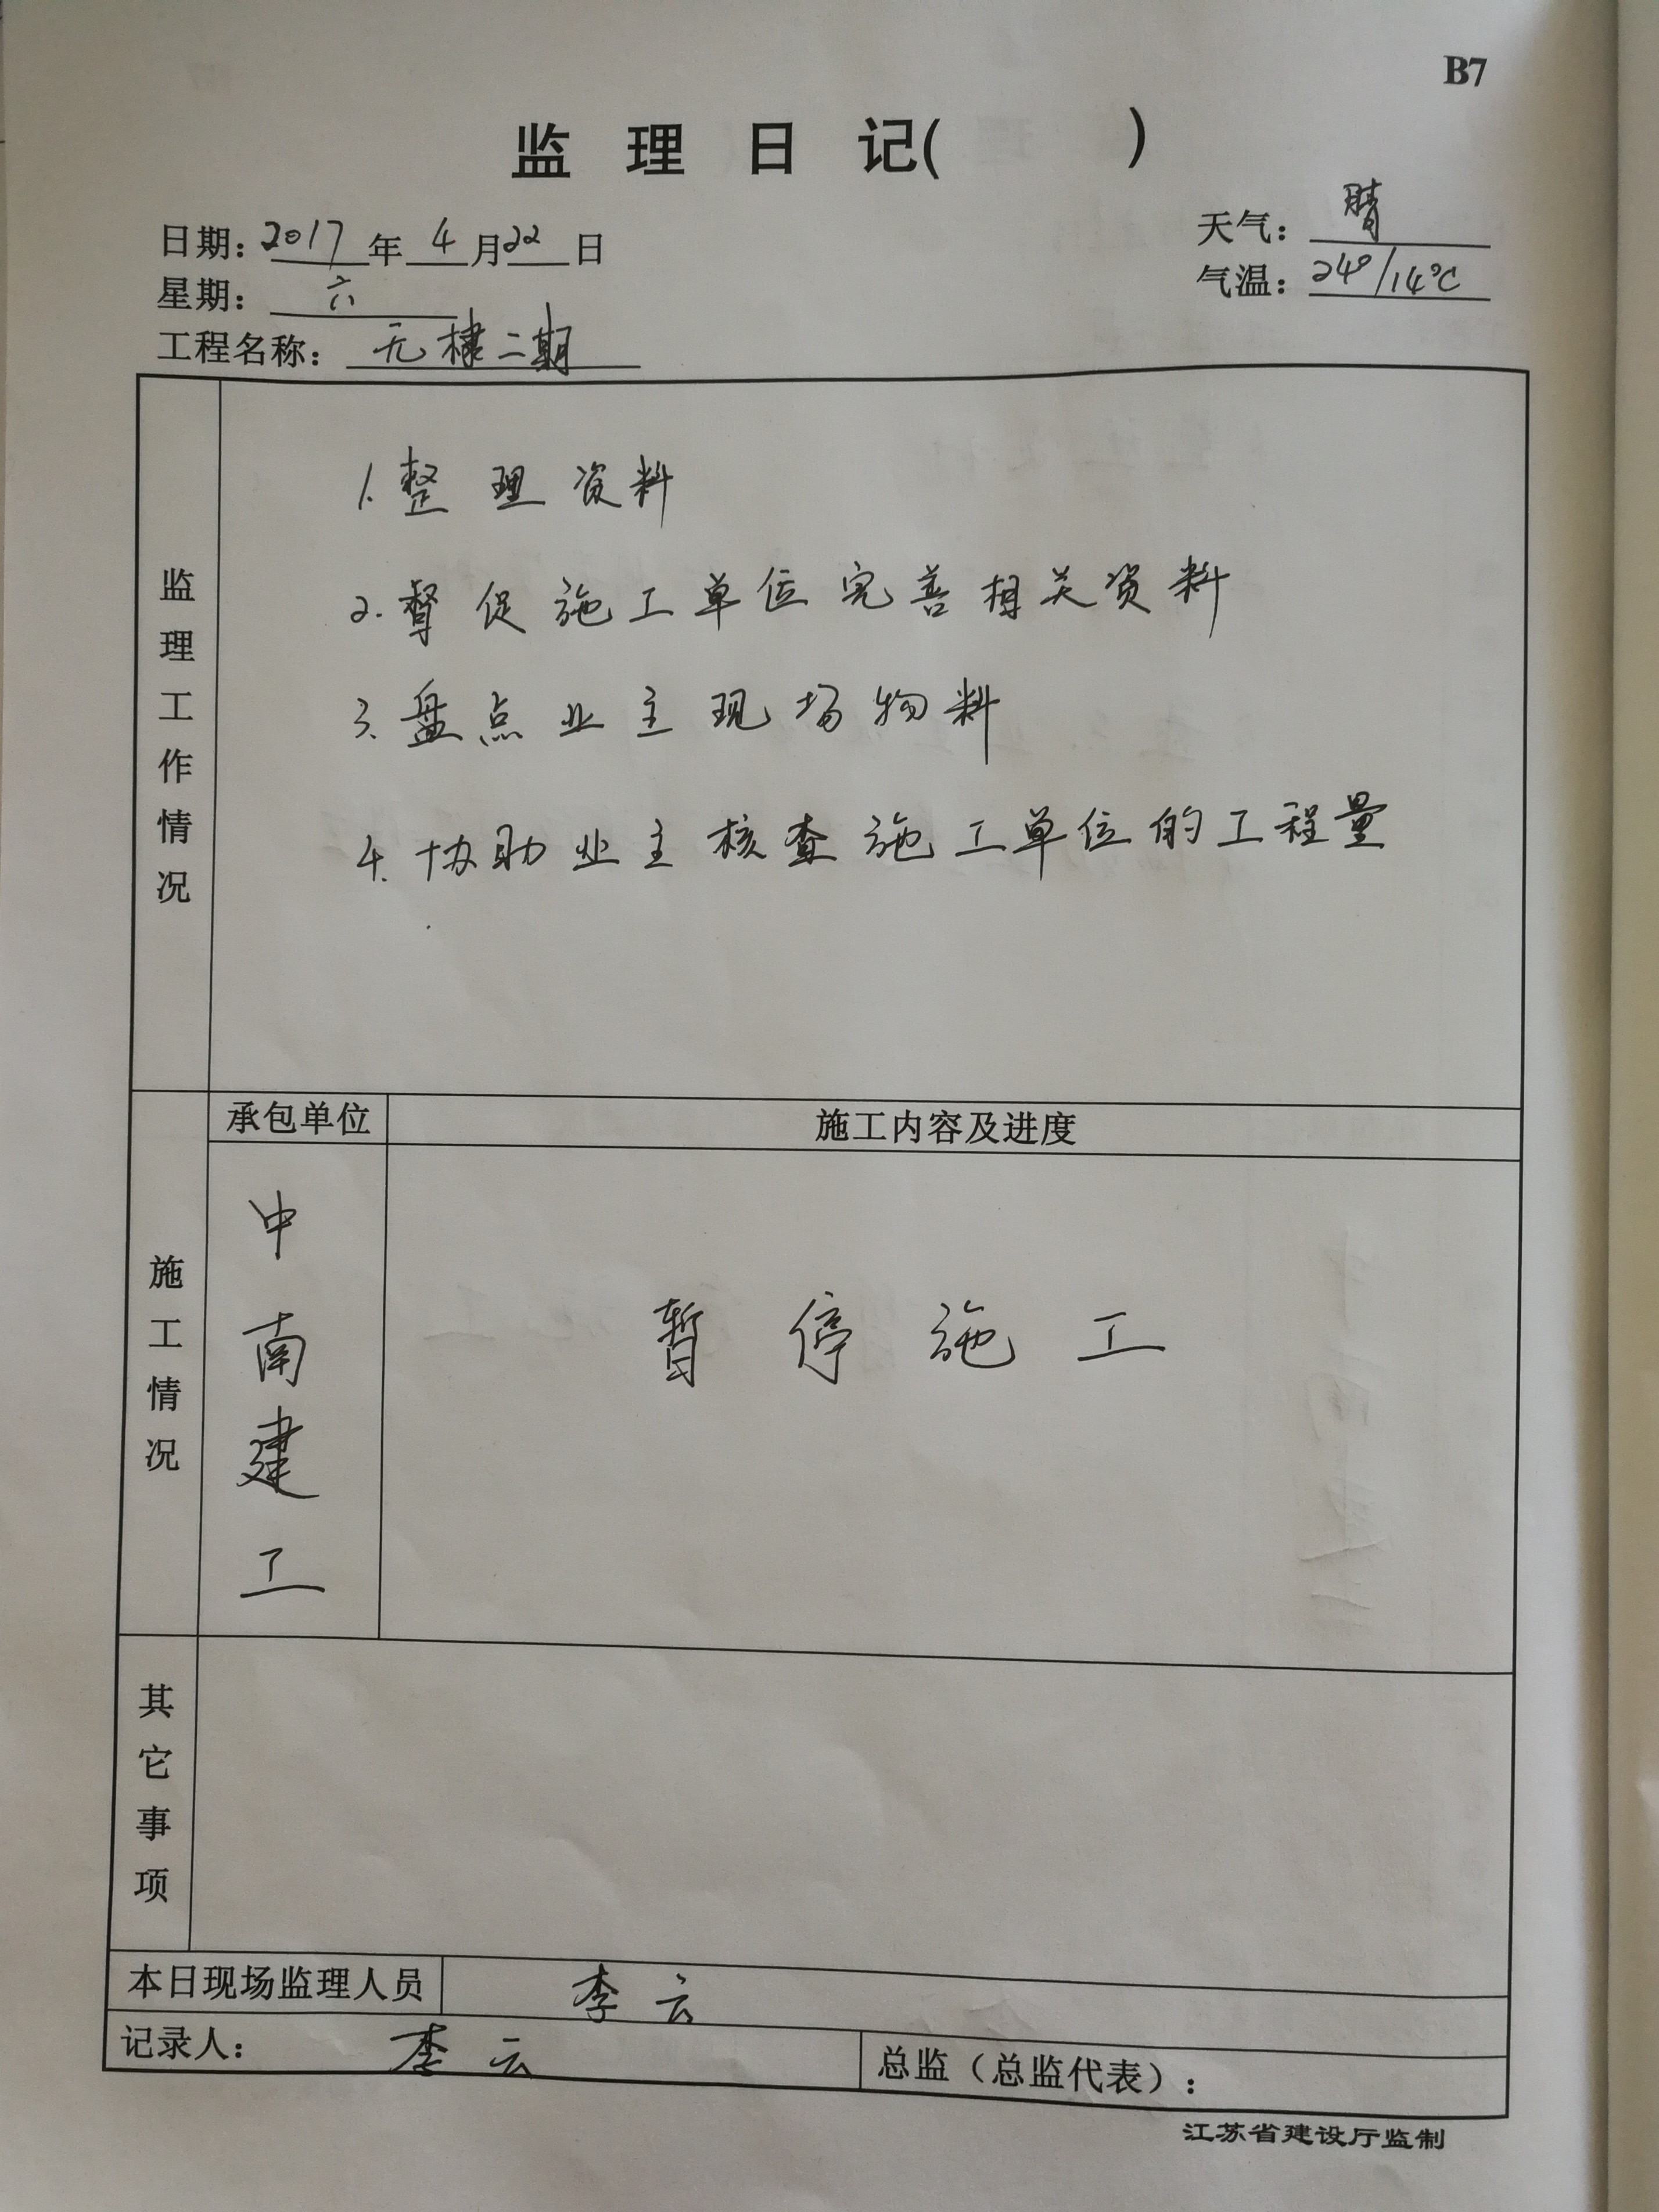 B7
监理日记(　　)
日期：2017年4月22日
天气：晴
星期：六
气温：24°/14℃
工程名称：无棣二期
监理工作情况
1.整理资料
2.督促施工单位完善相关资料
3.盘点业主现场物料
4.协助业主核查施工单位的工程量
施工情况
承包单位
施工内容及进度
中南建工
暂停施工
其它事项
本日现场监理人员 李云
记录人：李云
总监（总监代表）：
江苏省建设厅监制